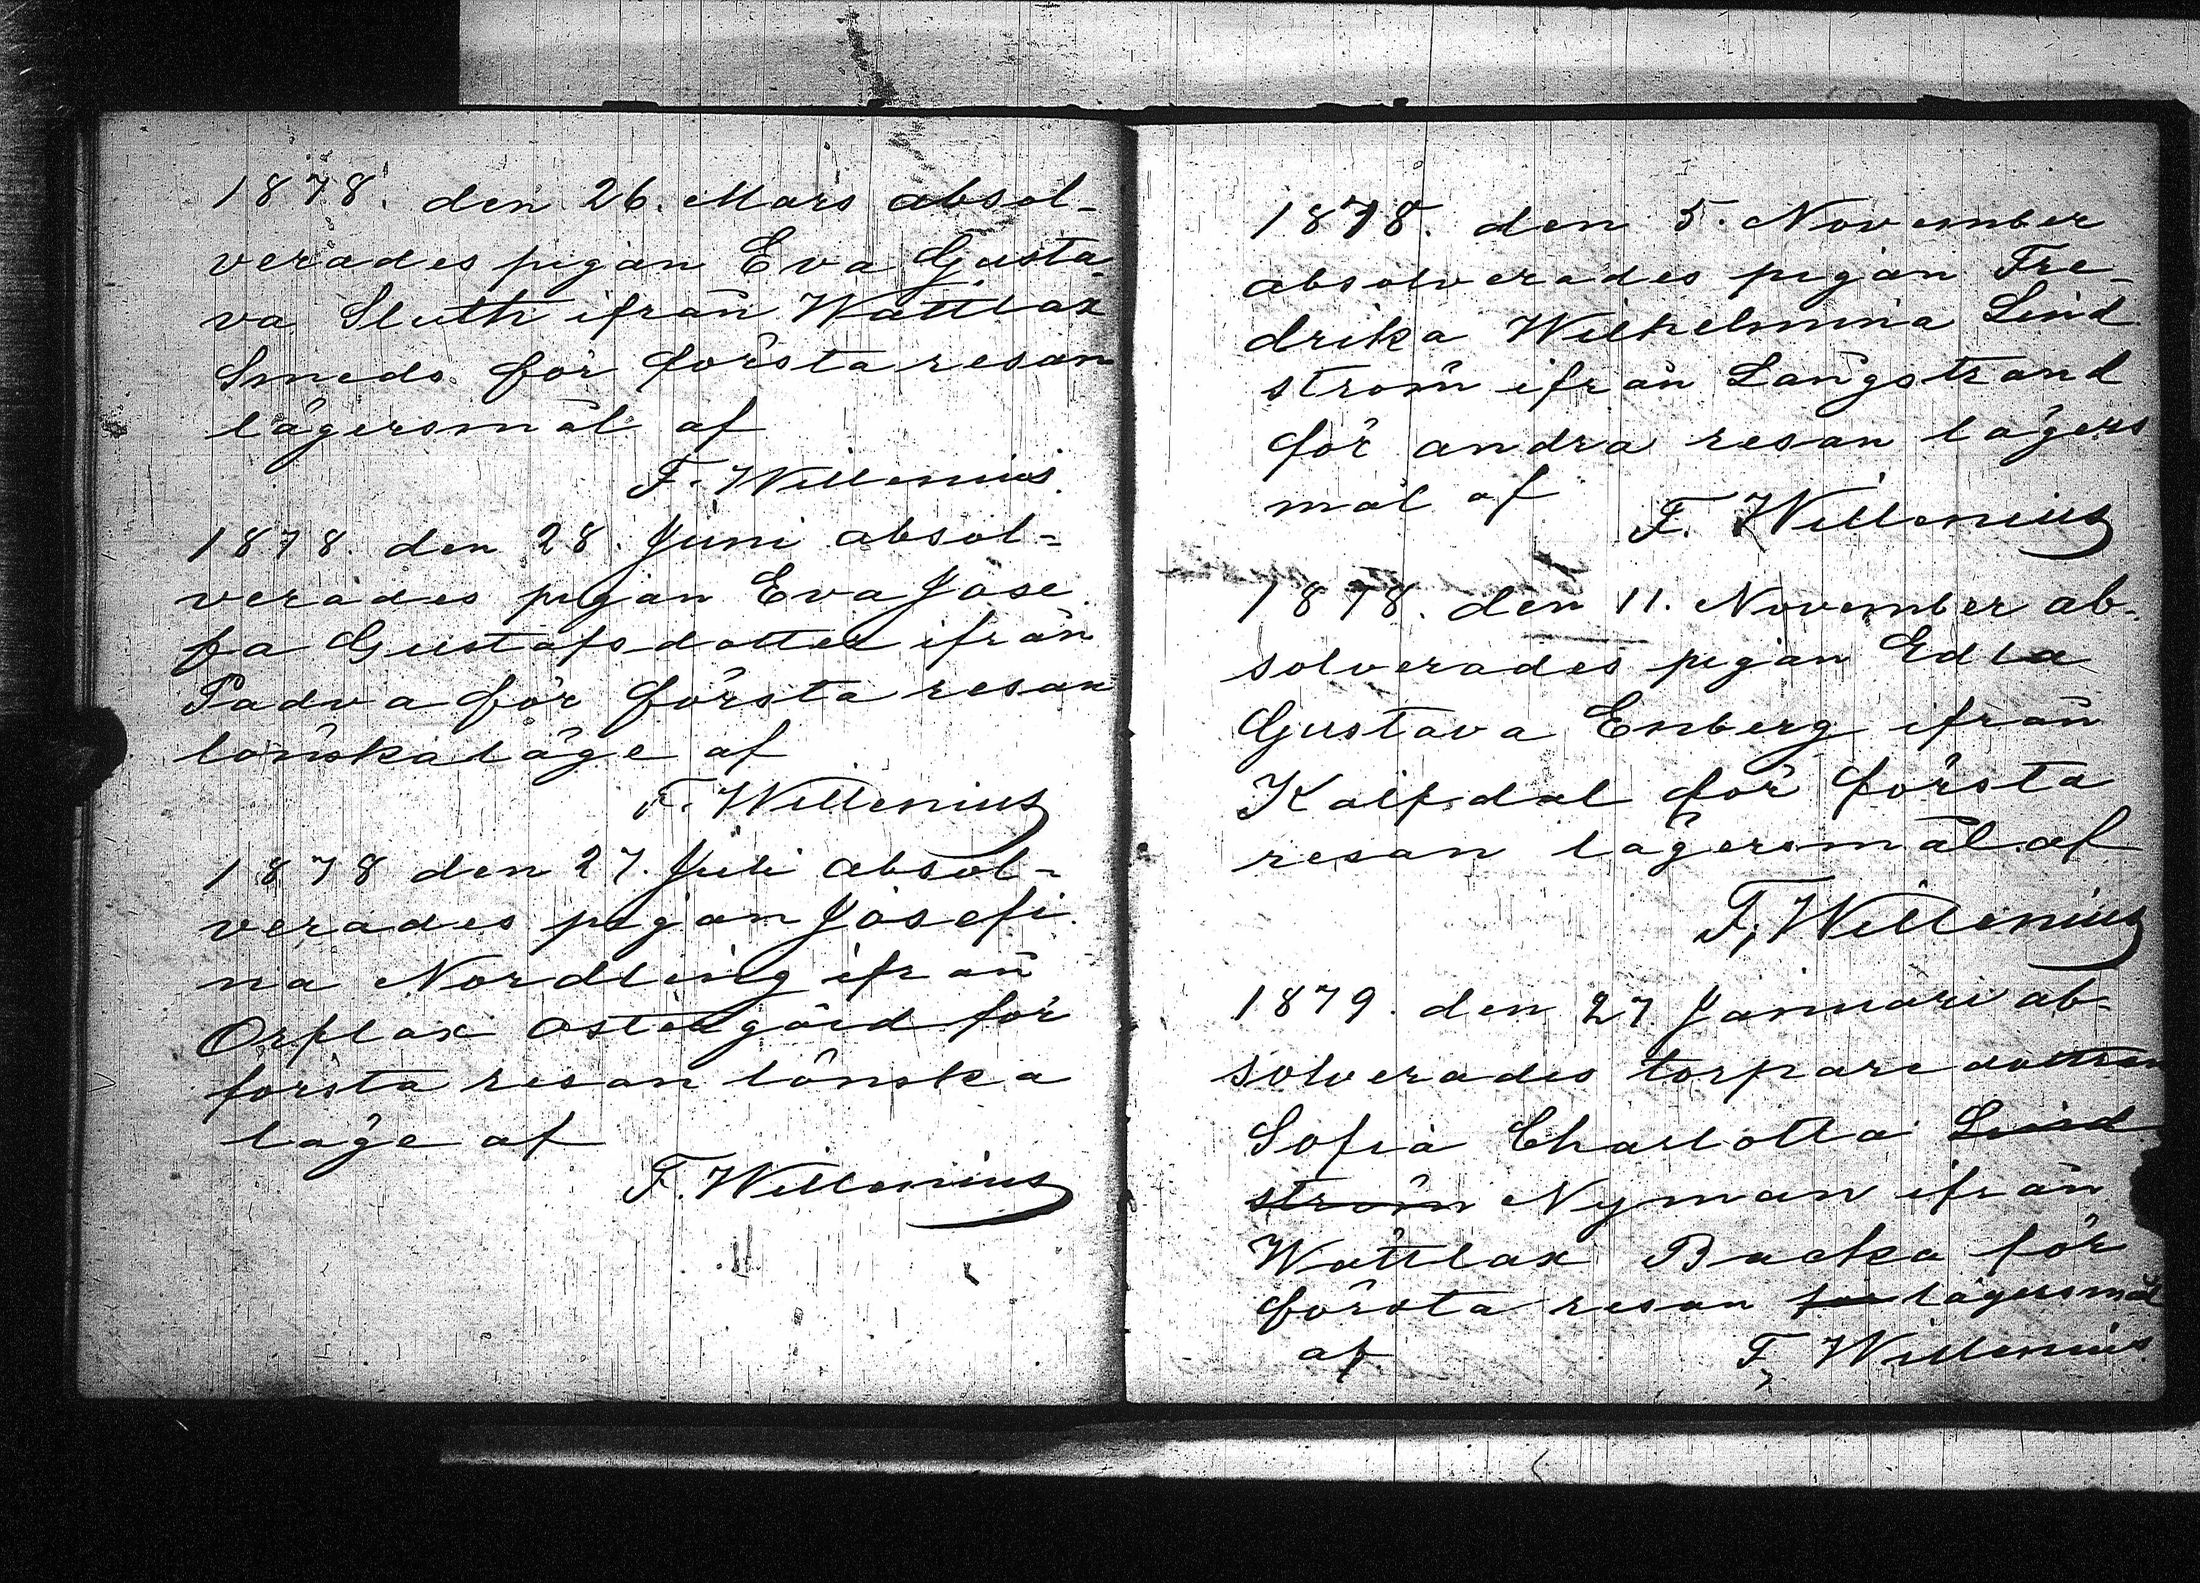 1878. den 26. Mars absol-
verades pigan Eva Gusta-
va Sluth ifrån Wättlax
Smeds för första resan
lägersmål af
F. Willenius.
1878. den 28. Juni absol-
verades pigan Eva Jose
fa Gustafsdotter ifrån
Padva för första resan
lönskaläge af
F. Willenius
1878 den 27. Juli absol-
verades pigan Josefi-
na Nordling ifrån
Orslax Östergård för
första resan lönska
läge af
F. Willenius
1878. den 5. November
absolverades pigan Fre-
drika Wilhelmina Lind
ström ifrån Långstrand
för andra resan lägers
mål af
F. Willenius
1878. den 11. November ab-
solverades pigan Edla
Gustava Enberg ifrån
Kalfdal för första
resan lägersmål af
F. Willenius
1879. den 27 Januari ab-
solverades torparedottran
Sofia Charlotta Lind
ström Nyman ifrån
Wättlax Backa för
första resan för lägersmål
af F. Willenius